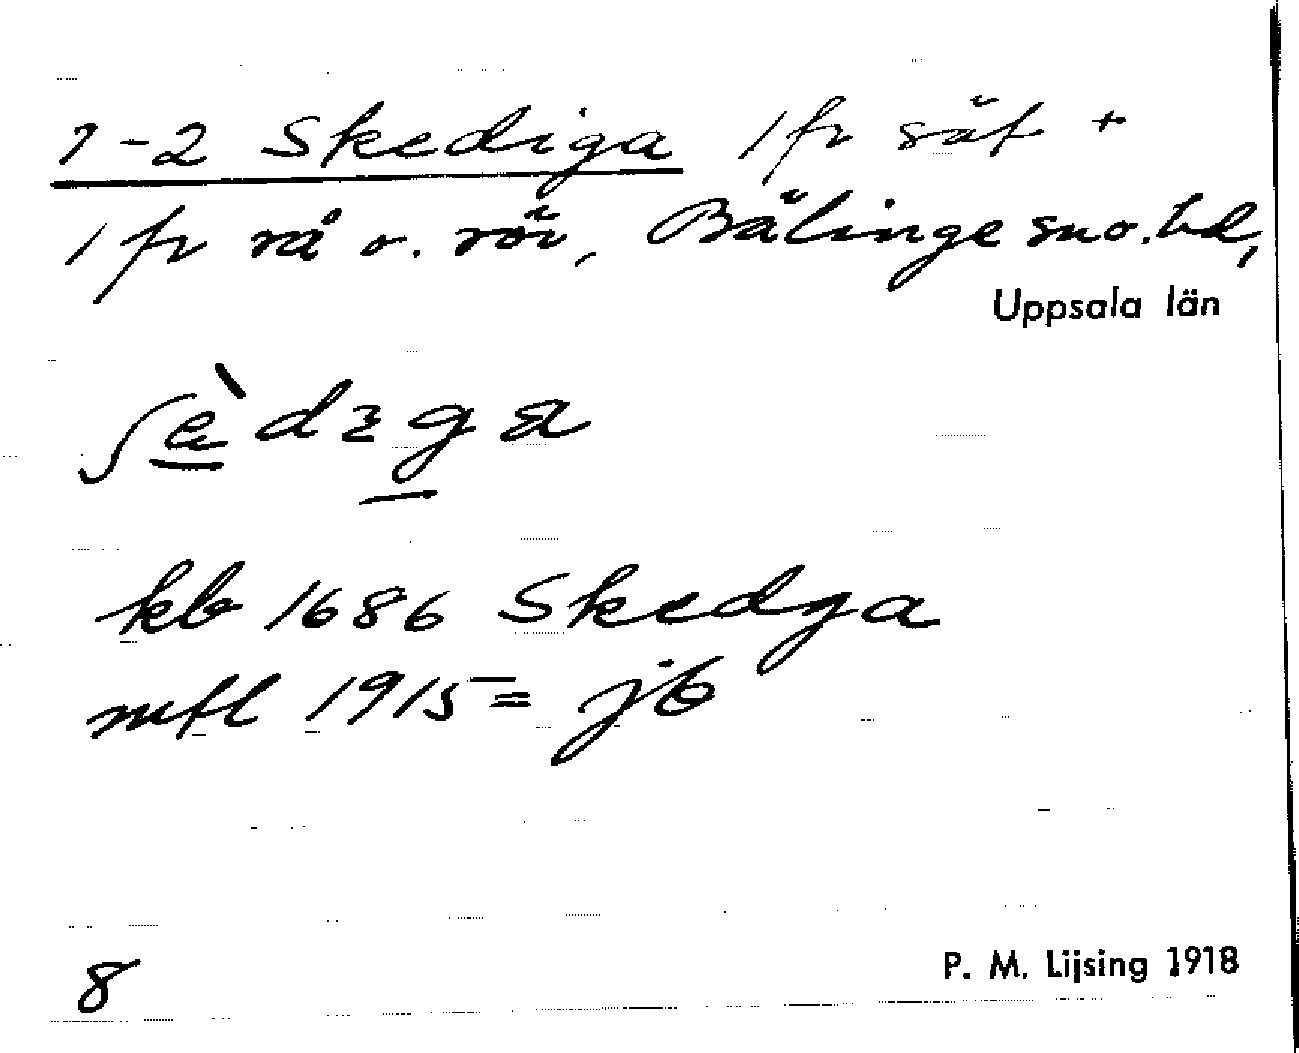 1-2 Skediga 1 fr sät +
1 fr rå o. rör, Bälinge sno. hd,
Uppsala län
ʃèdıga
kb 1686 Skedga
mfl 1915 = jb
8
P. M. Lijsing 1918